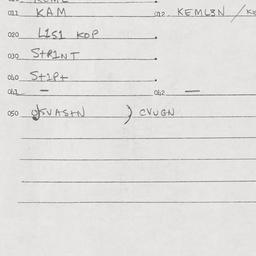 011 KAM 012 KEML3N /
020 L1S1 KOP
030 S+R1NT
040 S+1P+
041 — 042 —
050 SVAS+N ) CVUGN